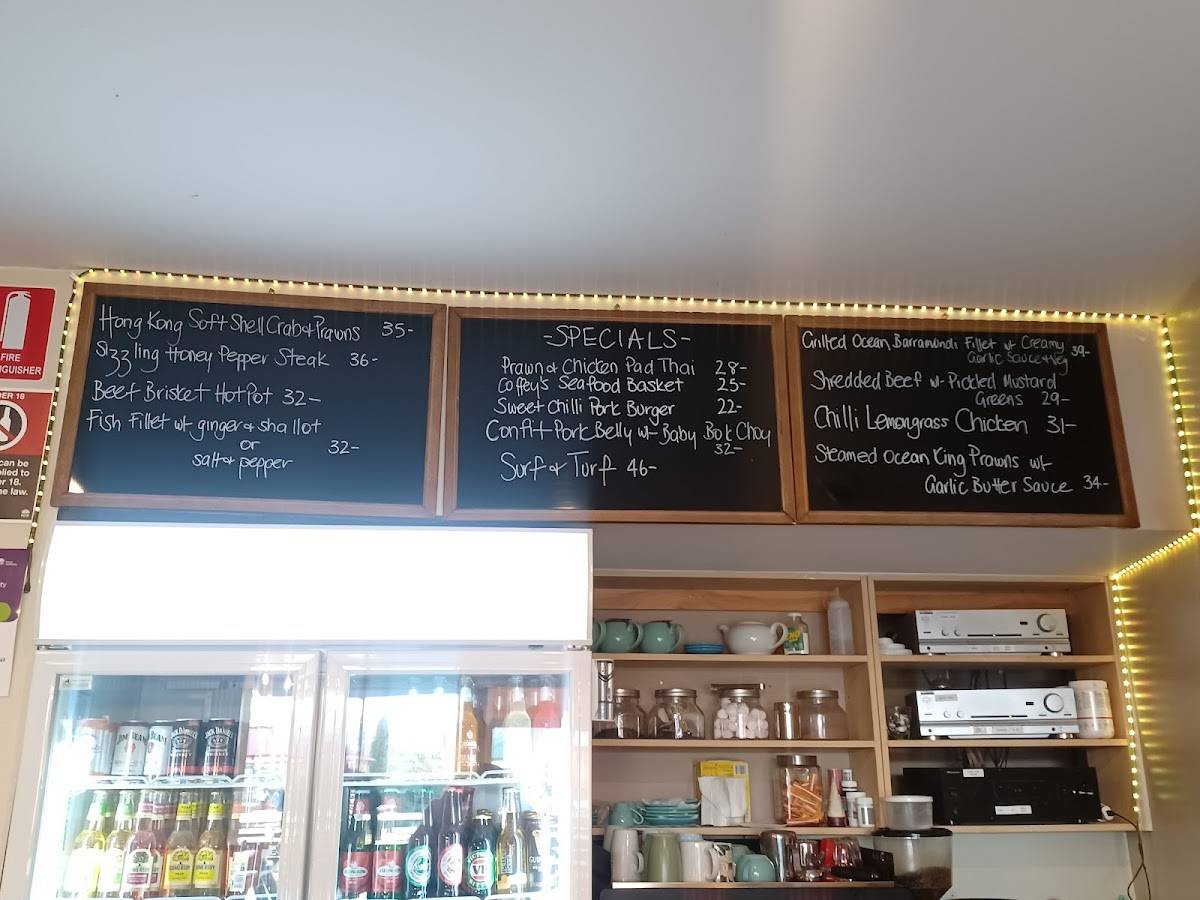 Hong Kong Soft Shell Crab & Prawns 35-
Sizzling Honey Pepper Steak 36-
Beef Brisket Hot Pot 32-
Fish Fillet w/- ginger & shallot
or 32-
salt & pepper
-SPECIALS-
Prawn & Chicken Pad Thai 28-
Coffey's Seafood Basket 25-
Sweet Chilli Pork Burger 22-
Confit Pork Belly w/- Baby Bok Choy
32-
Surf & Turf 46-
Grilled Ocean Barramundi Fillet w/- Creamy
Garlic Sauce & Veg 39-
Shredded Beef w/- Pickled Mustard
Greens 29-
Chilli Lemongrass Chicken 31-
Steamed Ocean King Prawns w/-
Garlic Butter Sauce 34-
FIRE
NGUISHER
DER 18
can be
lied to
r 18.
he law.
JIM BEAM
JACK DANIEL'S
VB